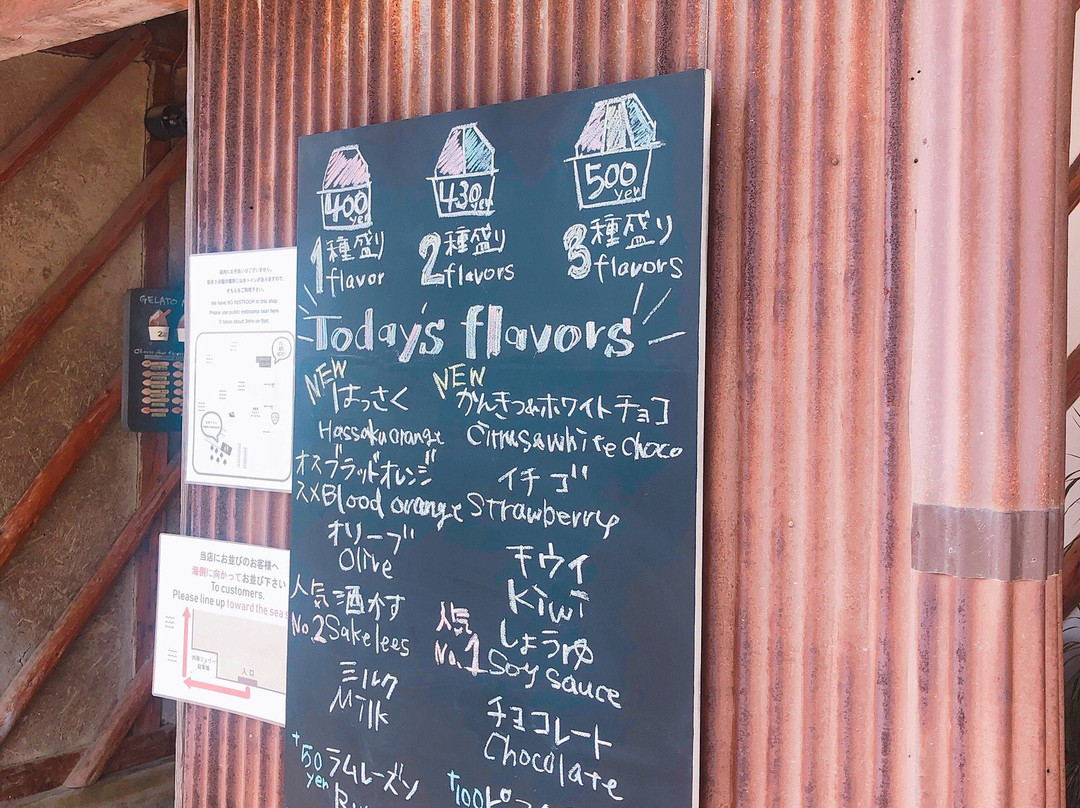 400 yen
430 yen
500 yen
1種盛り
flavor
2種盛り
flavors
3種盛り
flavors
Today's flavors
NEW
はっさく
Hassaku orange
オススメ
ブラッドオレンジ
Blood orange
オリーブ
Olive
人気 No.2
酒かす
Sakelees
ミルク
Milk
+50 yen
ラムレーズン
NEW
かんきつ&ホワイトチョコ
Citrus&white choco
イチゴ
Strawberry
キウイ
Kiwi
人気 No.1
しょうゆ
Soy sauce
チョコレート
Chocolate
+100
GELATO
We have NO RESTROOM in this shop.
Please use public restrooms near here.
当店にお並びのお客様へ
海側に向かってお並び下さい
To customers.
Please line up toward the sea
入口